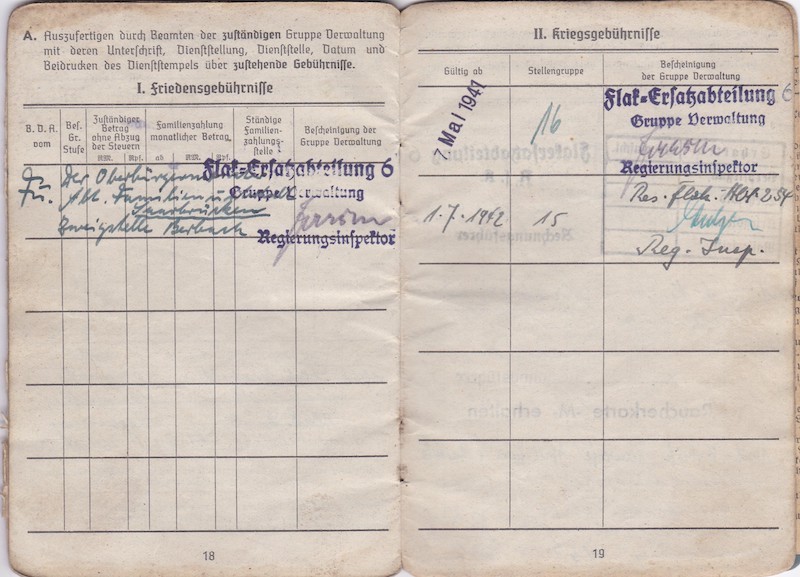 A. Auszufertigen durch Beamten der zuständigen Gruppe Verwaltung
mit deren Unterschrift, Dienststellung, Dienststelle, Datum und
Beidrucken des Dienststempels über zustehende Gebührnisse.
I. Friedensgebührnisse
B. D. A. vom
Bes. Gr. Stufe
Zuständiger Betrag ohne Abzug der Steuern
RM. Rpf.
Familienzahlung monatlicher Betrag
ab RM. Rpf.
Ständige Familienzahlungsstelle
Bescheinigung der Gruppe Verwaltung
Der Oberbürgerm
Abt. Familien
Saarbrücken
Zweigstelle
Flak-Ersatzabteilung 6
Gruppe Verwaltung
Regierungsinspektor
18
II. Kriegsgebührnisse
Gültig ab
Stellengruppe
Bescheinigung der Gruppe Verwaltung
7. Mai 1941
16
Flak-Ersatzabteilung 6
Gruppe Verwaltung
Regierungsinspektor
1.7.1942
15
Res. Flak. 254
Reg. Insp.
19